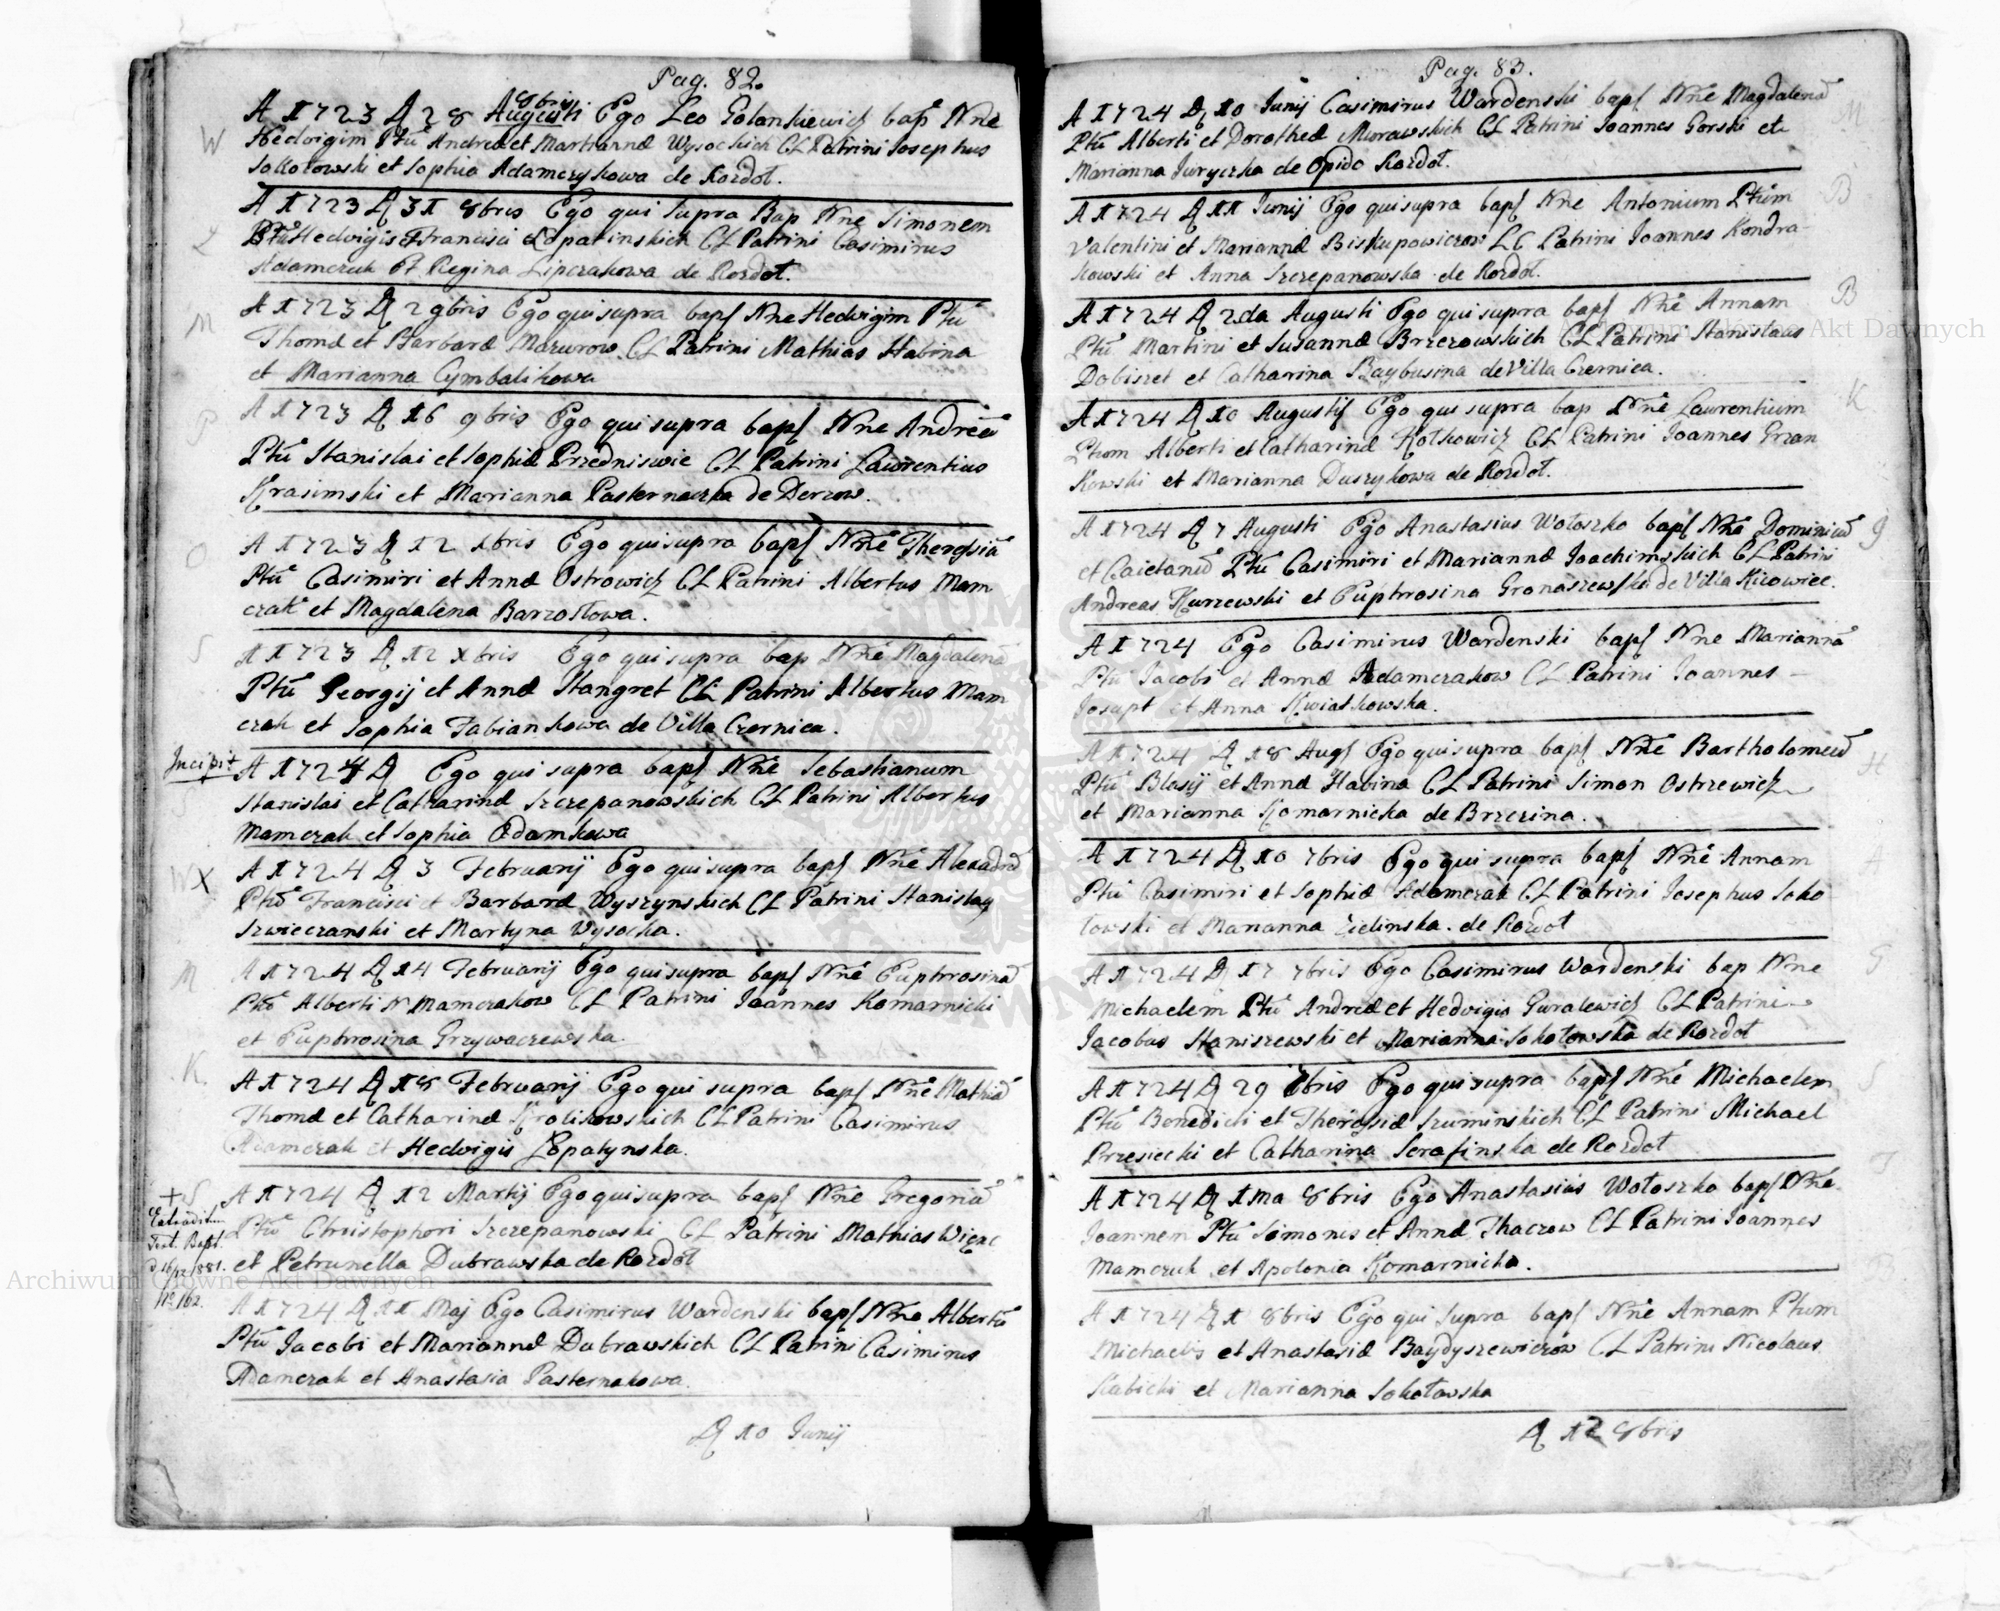 Pag. 82.
A 1723 D 28 Augusti 8bris Ego Leo Golankiewicz bap Nne
W
Hedvigim Ptu Andreæ et Mariannæ Wysockich CL Patrini Josephus
Sokołowski et Sophia Adamczykowa de Kozdół.
A 1723 D 31 8bris Ego qui supra Bap Nne Simonem
Ł
Ptu Hedvigis Francisci Łopatinskich CL Patrini Casimirus
Adamczuk Et Regina Lipczakowa de Kozdoł.
A 1723 D 2 9bris Ego qui supra bap Nne Hedvigim Ptu
M
Thomæ et Barbaræ Mazurow CL Patrini Mathias Habina
et Marianna Cymbalikowa
A 1723 D 16 9bris Ego qui supra bap Nne Andreā
P
Ptu Stanislai et Sophiæ CL Patrini Lawrentius
Krasimski et Marianna Pasternaczka de Derzow.
A 1723 D 12 xbris Ego qui supra bap Nne Theresiā
O
Ptu Casimiri et Annæ Ostrowicz CL Patrini Albertus Mam
czak et Magdalena Barzostowa.
S
A 1723 D 12 xbris Ego qui supra bap Nne Magdalenā
Ptu Georgij et Annæ Stangret CL Patrini Albertus Mam
czak et Sophia Fabiankowa de Villa Czernica.
Incipit A 1724 D Ego qui supra bap Nne Sebastianum
Stanislai et Catharinæ Szczepanowskich CL Patrini Albertus
Mamczak et Sophia Adamkowa
A 1724 D 3 Februarij Ego qui supra bap Nne
W X
Ptu Francisci et Barbaræ Wyszynskich CL Patrini Stanislaus
Szwieczanski et Martyna Wysocka.
A 1724 D 14 Februarij Ego qui supra bap Nne Euphrosinā
M
Ptu Alberti N Mamczakow CL Patrini Joannes Komarnicki
et Euphrosina Grzywaczewska.
K
A 1724 D 18 Februarij Ego qui supra bap Nne Mathiā
Thomæ et Catharinæ Krolikowskich CL Patrini Casimirus
Adamczak et Hedvigis Łopatynska.
+ S
A 1724 D 12 Martij Ego qui supra bap Nne Gregoriū
Extraditum
Ptu Christophori Szczepanowski CL Patrini Mathias
Test. Bapt.
et Petrunella Dubrawska de Kozdół
d 16/12/881.
No 162.
A 1724 D 11 Maj Ego Casimirus Wardenski bap Nne Albertū
Ptu Jacobi et Mariannæ Dubrawskich CL Patrini Casimirus
Adamczak et Anastasia Pasternakowa.
D 10 Junij
Pag. 83.
A 1724 D 10 Junij Casimirus Wardenski bap Nne Magdalenā
M
Ptu Alberti et Dorotheæ Murawskich CL Patrini Joannes Gorski et
Marianna Juryczka de Opido Kozdół.
A 1724 D 11 Junij Ego qui supra bap Nne Antonium Ptum
B
Valentini et Mariannæ Biskupowiczow LC Patrini Joannes Kondra-
kowski et Anna Szczepanowska de Kozdół.
A 1724 D 2da Augusti Ego qui supra bap Nne Annam
B
Ptu Martini et Susannæ Brzezowskich CL Patrini Stanislaus
Dobiszet et Catharina Baybusina de Villa Czernica.
A 1724 D 10 Augusti Ego qui supra bap Nne Laurentium
K
Ptum Alberti et Catharinæ Kotkowicz CL Patrini Joannes Grzan
kowski et Marianna Duszykowa de Kozdół.
A 1724 D 7 Augusti Ego Anastasius Wołoszko bap Nne Dominicū
J
et Caietanū Ptu Casimiri et Mariannæ Joachimskich CL Patrini
Andreas Kurzewski et Euphrosina Gronaszewska de Villa Kiiowiec.
A 1724 Ego Casimirus Wardenski bap Nne Mariannā
Ptu Jacobi et Annæ Adamczakow CL Patrini Joannes
Josupt et Anna Kwiatkowska.
A 1724 D 18 Aug Ego qui supra bap Nne Bartholomeū
H
Ptu Blasij et Annæ Habina CL Patrini Simon Ostrzewicz
et Marianna Komarnicka de Brzezina.
A 1724 D 10 7bris Ego qui supra bap Nne Annam
A
Ptu Casimiri et Sophiæ Adamczak CL Patrini Josephus Soko
łowski et Marianna Zielinska. de Kozdoł
A 1724 D 17 7bris Ego Casimirus Wardenski bap Nne
G
Michaelem Ptu Andreæ et Hedvigis Guralewicz CL Patrini
Jacobus Staniszewski et Marianna Sokołowska de Kozdoł
A 1724 D 29 7bris Ego qui supra bap Nne Michaelem
S
Ptu Benedicti et Theresiæ Szuminskich CL Patrini Michael
Przesiecki et Catharina Serafinska de Kozdoł
A 1724 D 1ma 8bris Ego Anastasius Wołoszko bap Nne
T
Joannem Ptu Simonis et Annæ Tkaczow CL Patrini Joannes
Mamczuk et Apolonia Komarnicka.
A 1724 D 1 8bris Ego qui supra bap Nne Annam Ptum
Michaelis et Anastasiæ Baydyszewiczow CL Patrini Nicolaus
Kabicki et Marianna Sokołowska
D 12 8bris
Archiwum Główne Akt Dawnych
Archiwum Główne Akt Dawnych